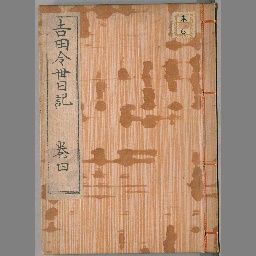 吉田令世日記 巻四